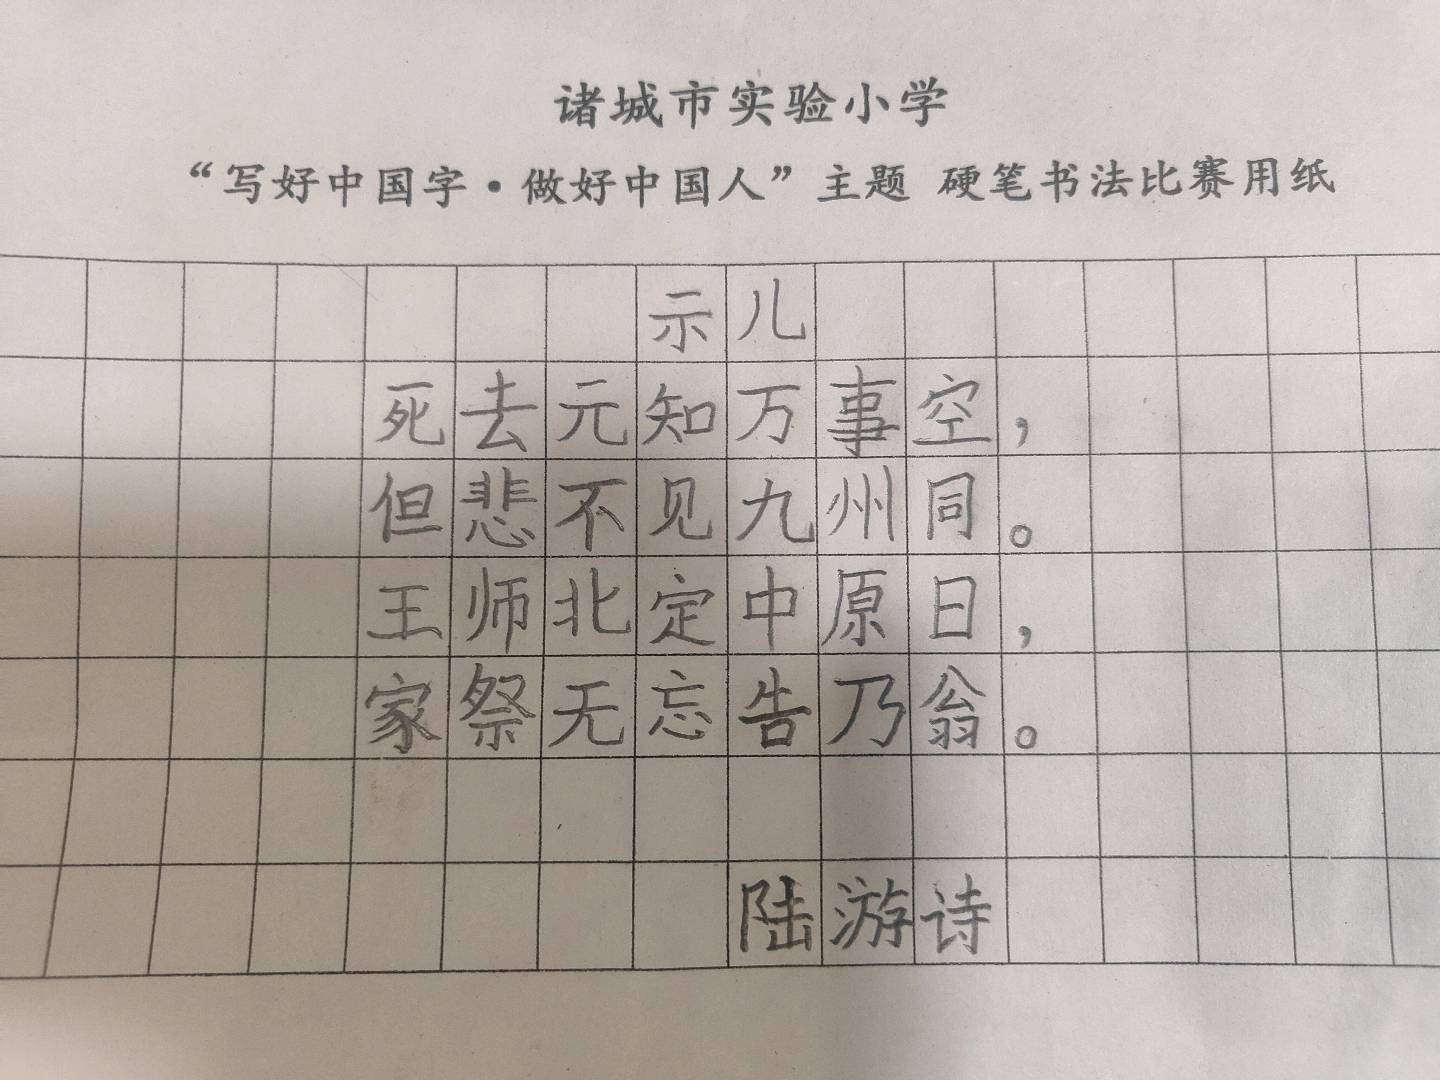 诸城市实验小学
“写好中国字·做好中国人”主题 硬笔书法比赛用纸
示儿
死去元知万事空，
但悲不见九州同。
王师北定中原日，
家祭无忘告乃翁。
陆游诗